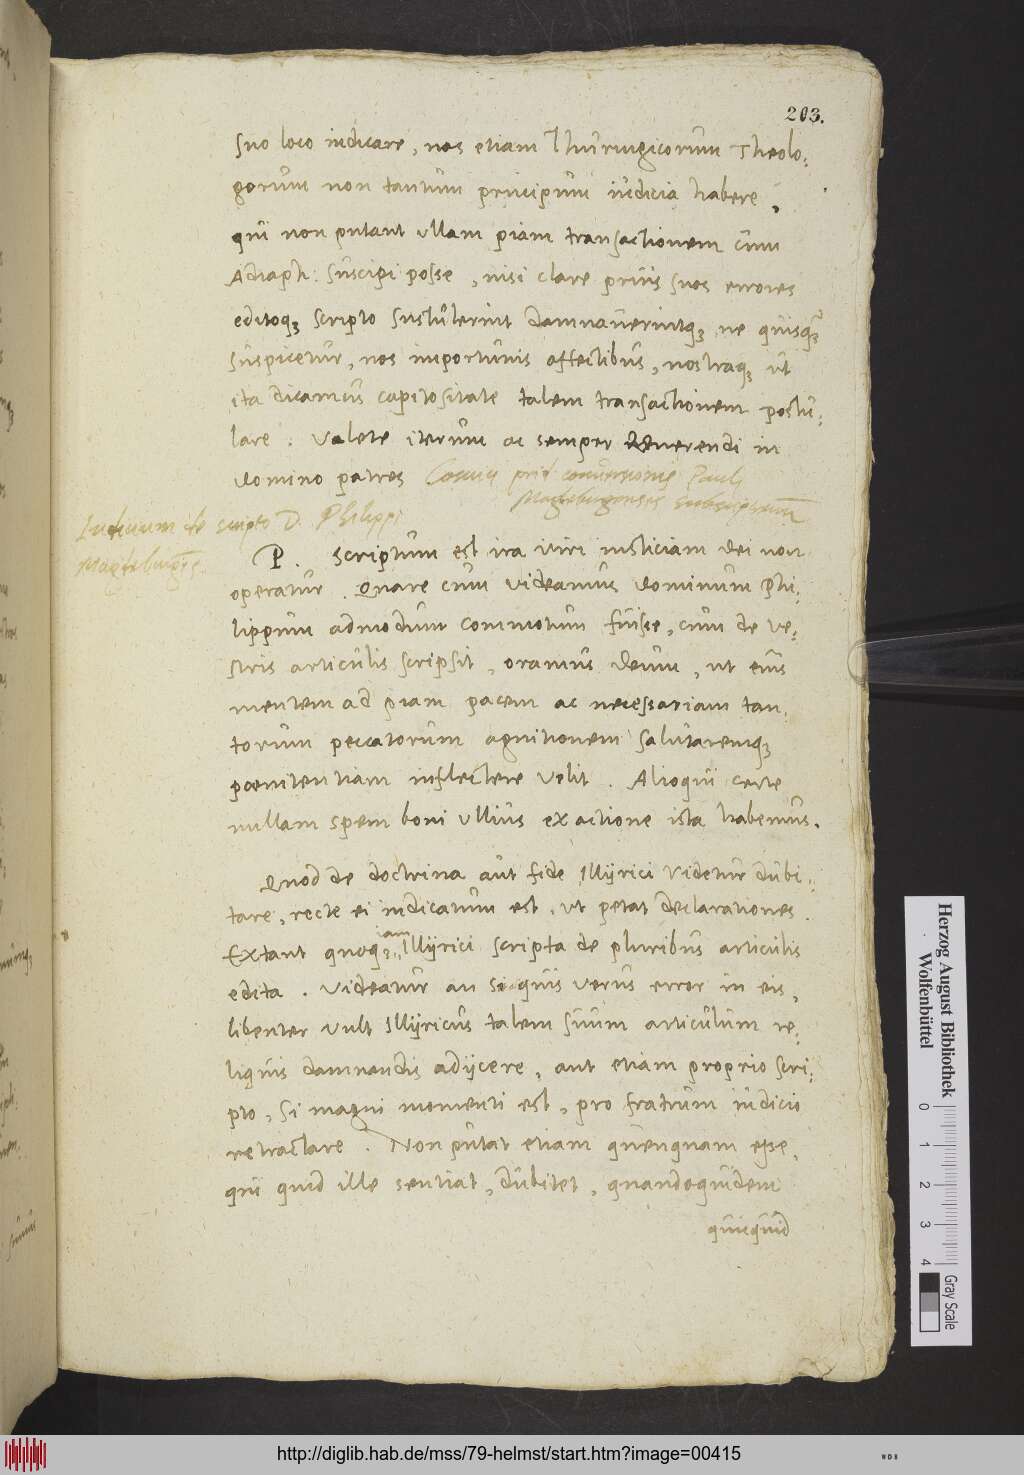 203.
suo loco indicare, nos etiam Thuringicorum Theolo-
gorum non tantum principum iudicia habere,
qui non putant ullam piam transactionem cum
Adiaph: suscipi posse, nisi clare prius suos errores
editoq3 scripto sustulerint damnauerintq3, ne quisq3
suspicetur, nos importunis affectibus, nostraq3 ut
ita dicamus capitositate talem transactionem postu-
lare. Valete iterum ac semper Reuerendi in
domino patres prid conuersionis Pauli
Magdeburgenses subscripserunt
Iudicium de scripto D. Philippi
Magdeburgens.
P. Scriptum est ira viri iusticiam dei non
operatur. Quare cum videamus dominum Phi-
lippum admodum commotum fuisse, cum de ve-
stris articulis scripsit, oramus deum, ut eius
mentem ad piam pacem ac necessariam tan-
torum peccatorum agnitionem salutaremq3
poenitentiam inflectere velit. Alioqui certe
nullam spem boni ullius ex actione ista habemus.
Quod de doctrina aut fide Illyrici videtur dubi-
tare, recte ei indicatum est, ut petat declarationes.
Extant quoq3 iam Illyrici scripta de pluribus articulis
edita. Videatur an si quis verus error in eis,
libenter vult Illyricus talem suum articulum re-
liquis damnandis adijcere, aut etiam proprio scri-
pto, si magni momenti est, pro fratrum iudicio
retractare. Non putat etiam quenquam esse,
qui quid ille sentiat, dubitet, quandoquidem
quicquid
Herzog August Bibliothek
Wolfenbüttel
0 1 2 3 4
Gray Scale
http://diglib.hab.de/mss/79-helmst/start.htm?image=00415